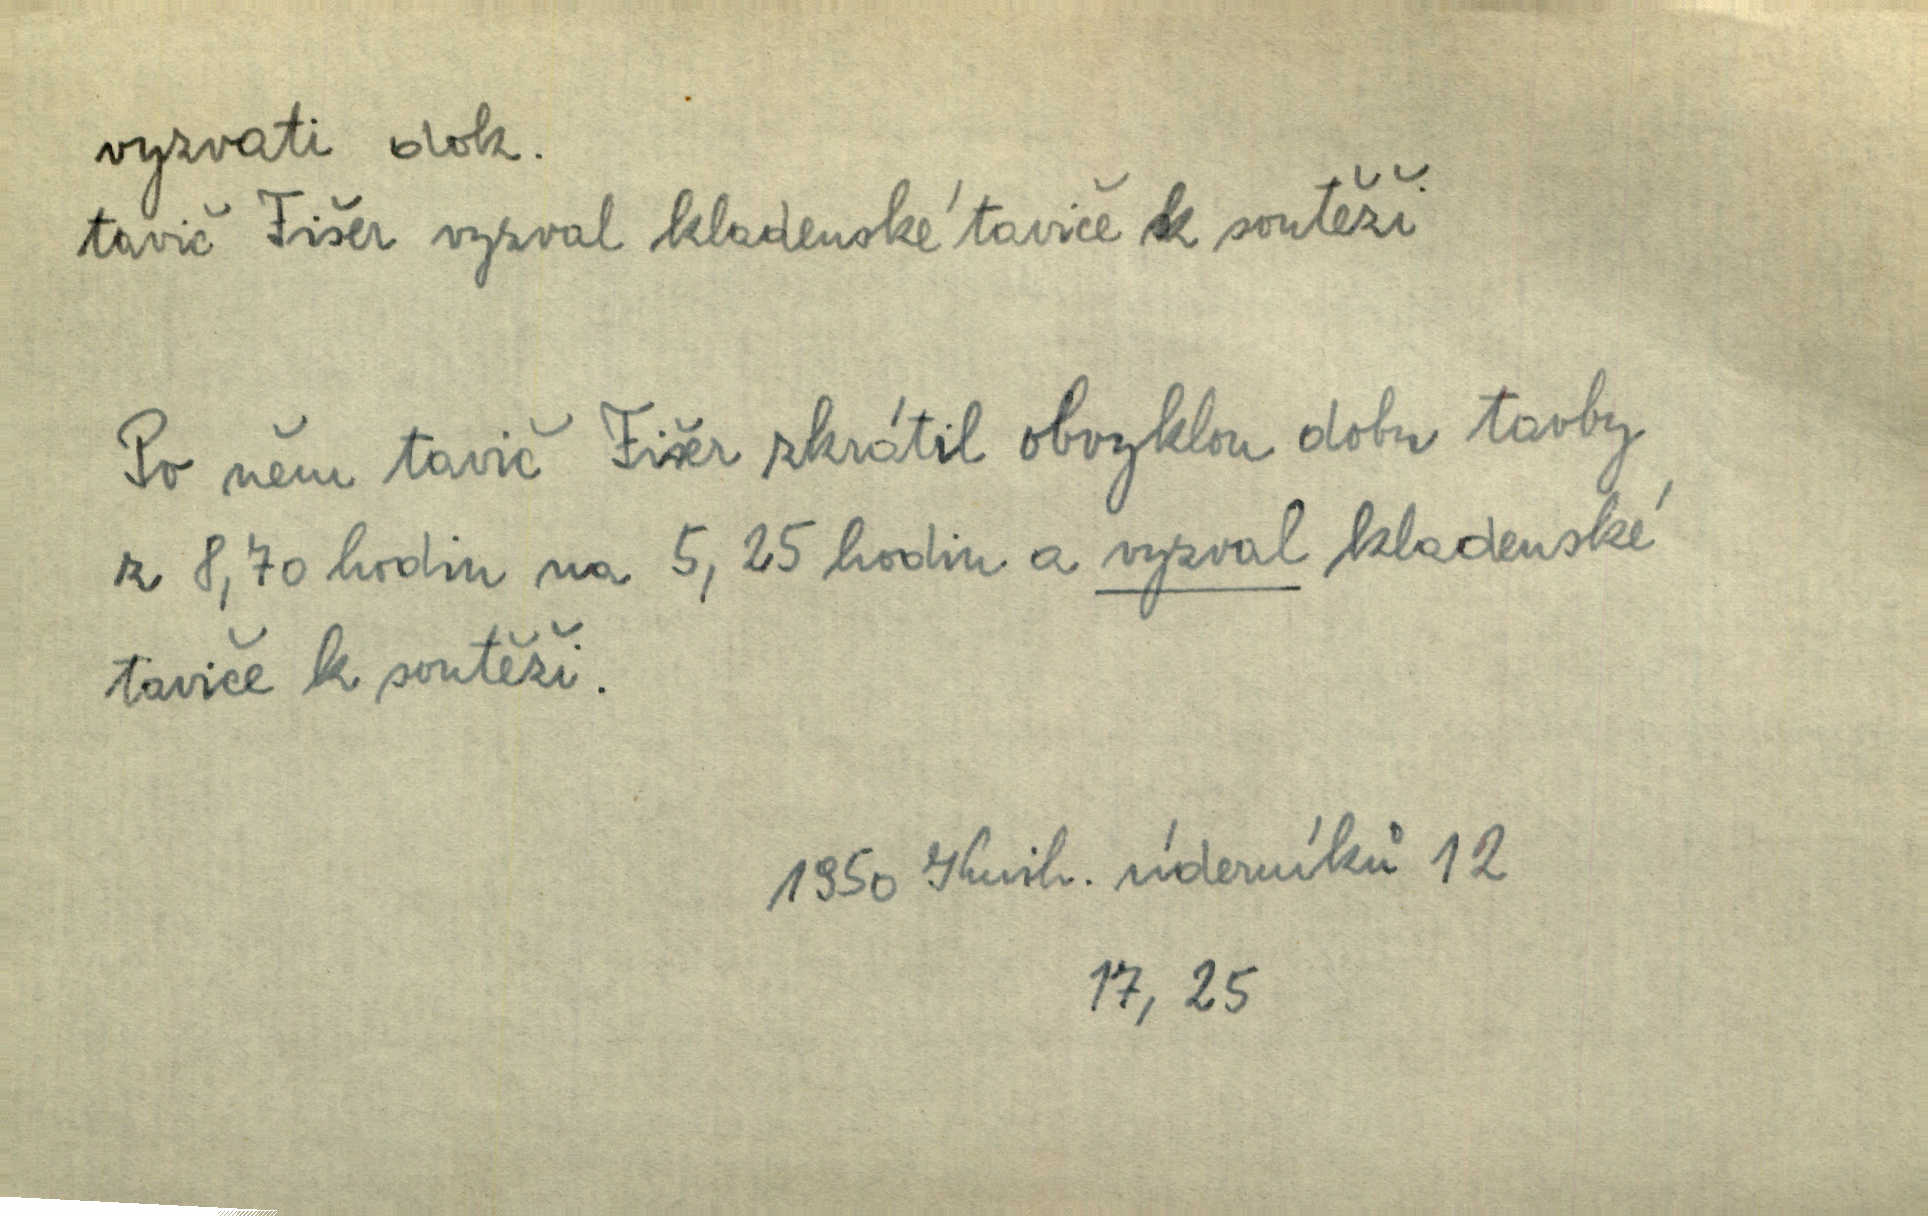 vyzvati dok.
tavič Fišer vyzval kladenské taviče k soutěži
Po něm tavič Fišer zkrátil obvyklou dobu tavby
z 8,70 hodin na 5,25 hodin a vyzval kladenské
taviče k soutěži.
1950 Knih. úderníků 12
17, 25